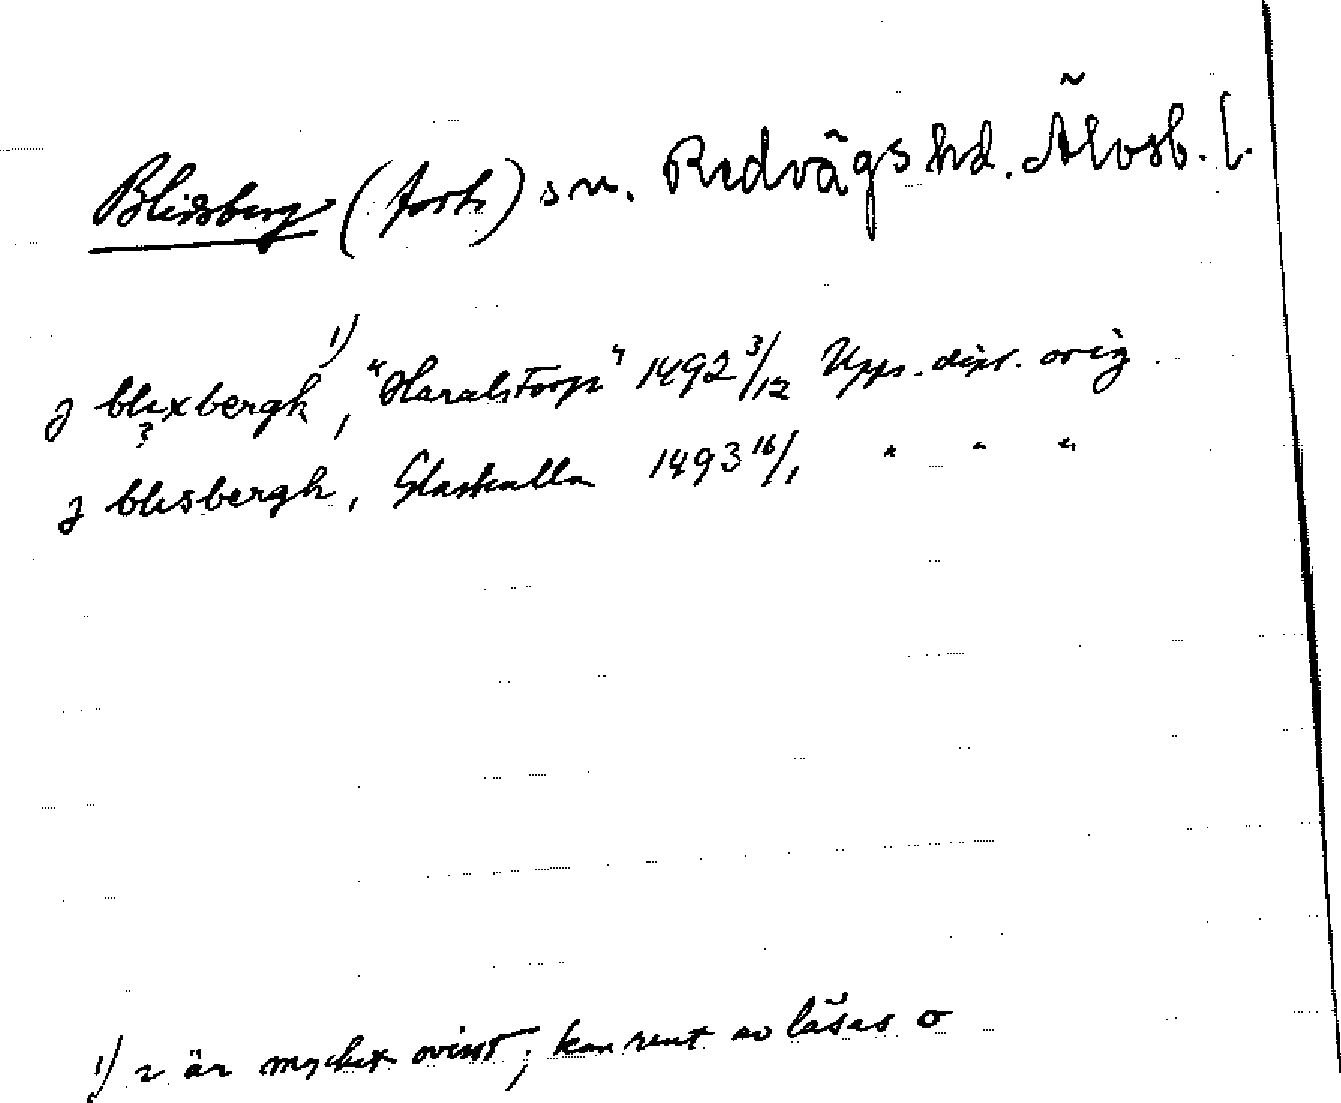 Blidsberg (forts) sn. Redvägs hd. Älvsb. l.
j blexbergh 1), "Haralstorp" 1492 3/12 Upps. dipl. orig.
?
j blesbergh, Slastculla 1493 16/1 " " "
1) e är mycket ovisst, kan rent av läsas o